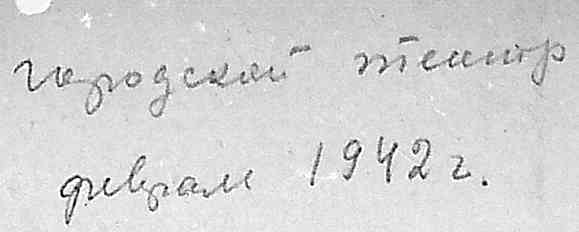 городской театр
февраль 1942 г.